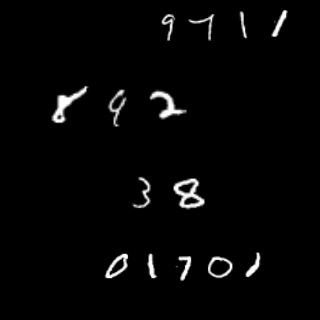 9711
892
38
01701